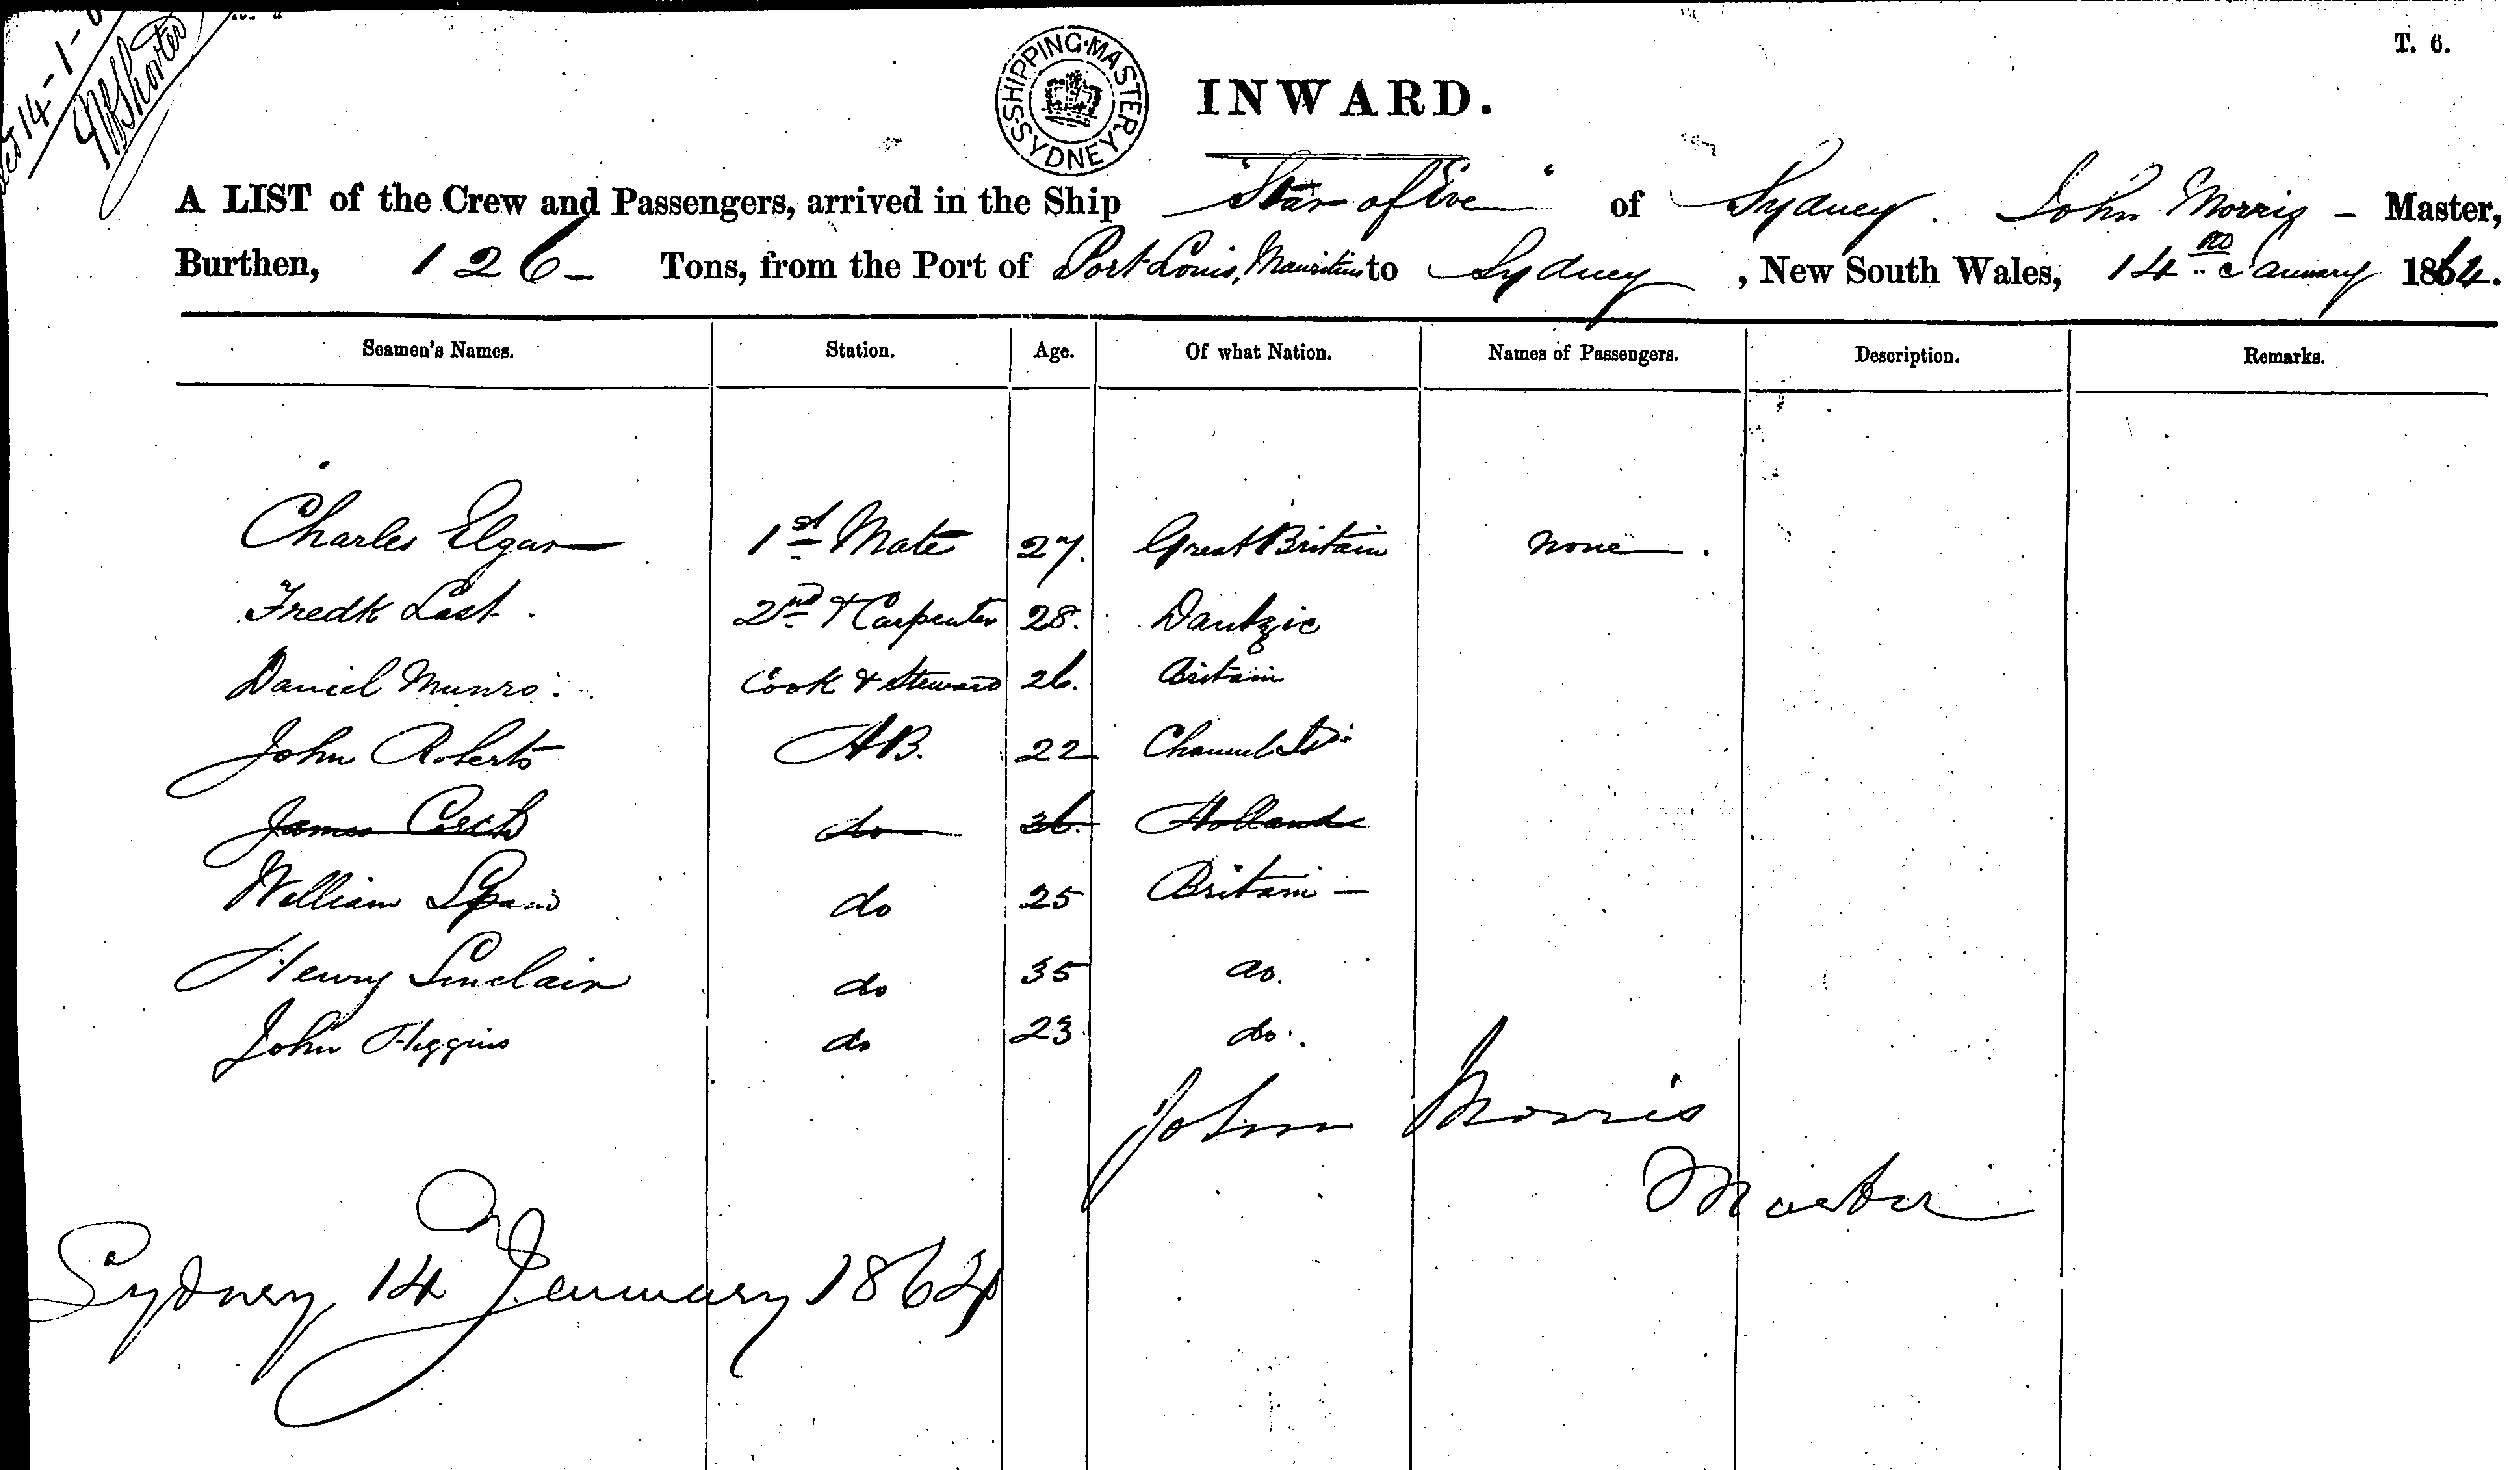 T. 6.
14-1-
SHIPPING MASTER SYDNEY
INWARD.
A LIST of the Crew and Passengers, arrived in the Ship "Star of Eve" of Sydney. John Morris - Master,
Burthen, 126 - Tons, from the Port of Port Louis, Mauritius to Sydney, New South Wales, 14 January 1864.
Seamen's Names. Station. Age. Of what Nation. Names of Passengers. Description. Remarks.
Charles Elgar 1st Mate 27. Great Britain none.
Fredk Last. 2nd & Carpenter 28. Dantzic
Daniel Munro. Cook & Steward 26. Britain
John Roberts AB. 22 Channel Is:
James do 36. Holland
William do 25 Britain -
Henry Sinclair do 35 do.
John Higgins do 23 do.
John Morris
Master
Sydney 14 January 1864